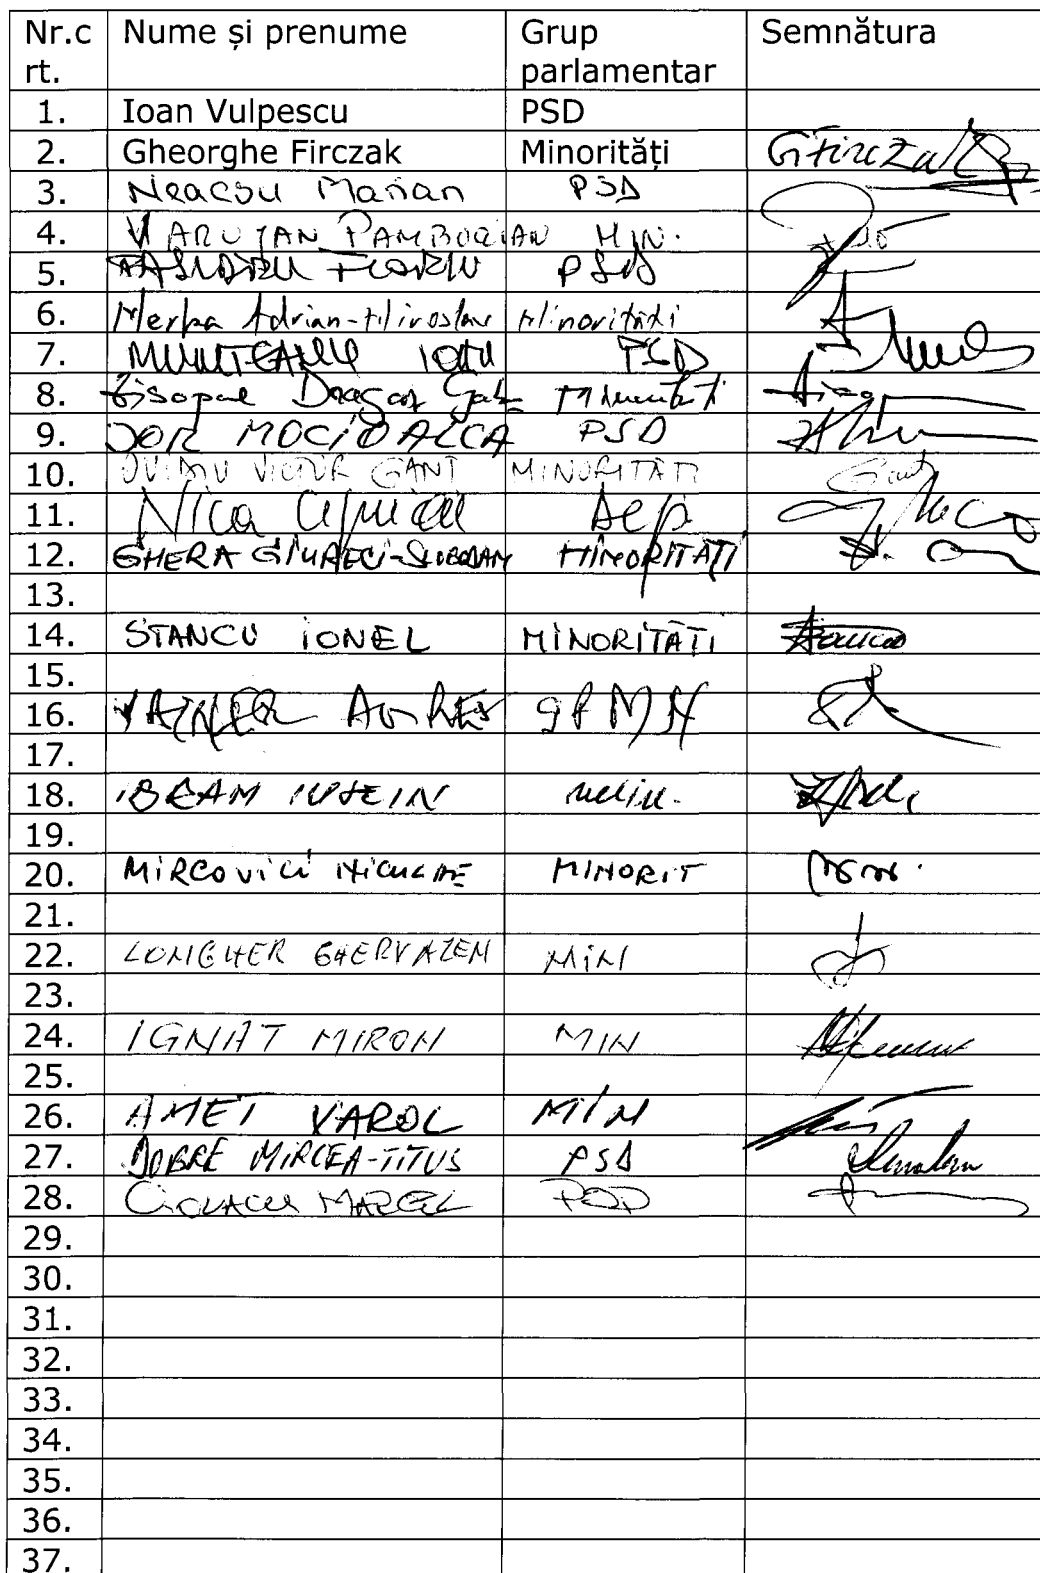 Nr.c Nume și prenume Grup Semnătura
rt. parlamentar
1. Ioan Vulpescu PSD
2. Gheorghe Firczak Minorități GFirczak
3. Neacsu Marian PSD
4. VARUJAN PAMBUCCIAN MIN.
5. FLORIN PSD
6. Merka Adrian-Miroslav Minorități
7. MUNTEANU IOAN PSD
8. Zisopol Dragos Minorități
9. DOR MOCIOALCA PSD
10. OVIDIU VICTOR GANT MINORITATI Gant
11. Nica
12. GHERA GIURECI-SLOBODAN MINORITATI
13.
14. STANCU IONEL MINORITĂTI Stancu
15.
16. VAINER AUREL GPMN
17.
18. IBRAM IUSEIN min.
19.
20. MIRCOVICI NICULAE MINORIT
21.
22. LONGHER GHERVAZEN MIN
23.
24. IGNAT MIRON MIN
25.
26. AMET VAROL MIN
27. DOBRE MIRCEA-TITUS PSD
28. CIOLACU MARCEL PSD
29.
30.
31.
32.
33.
34.
35.
36.
37.